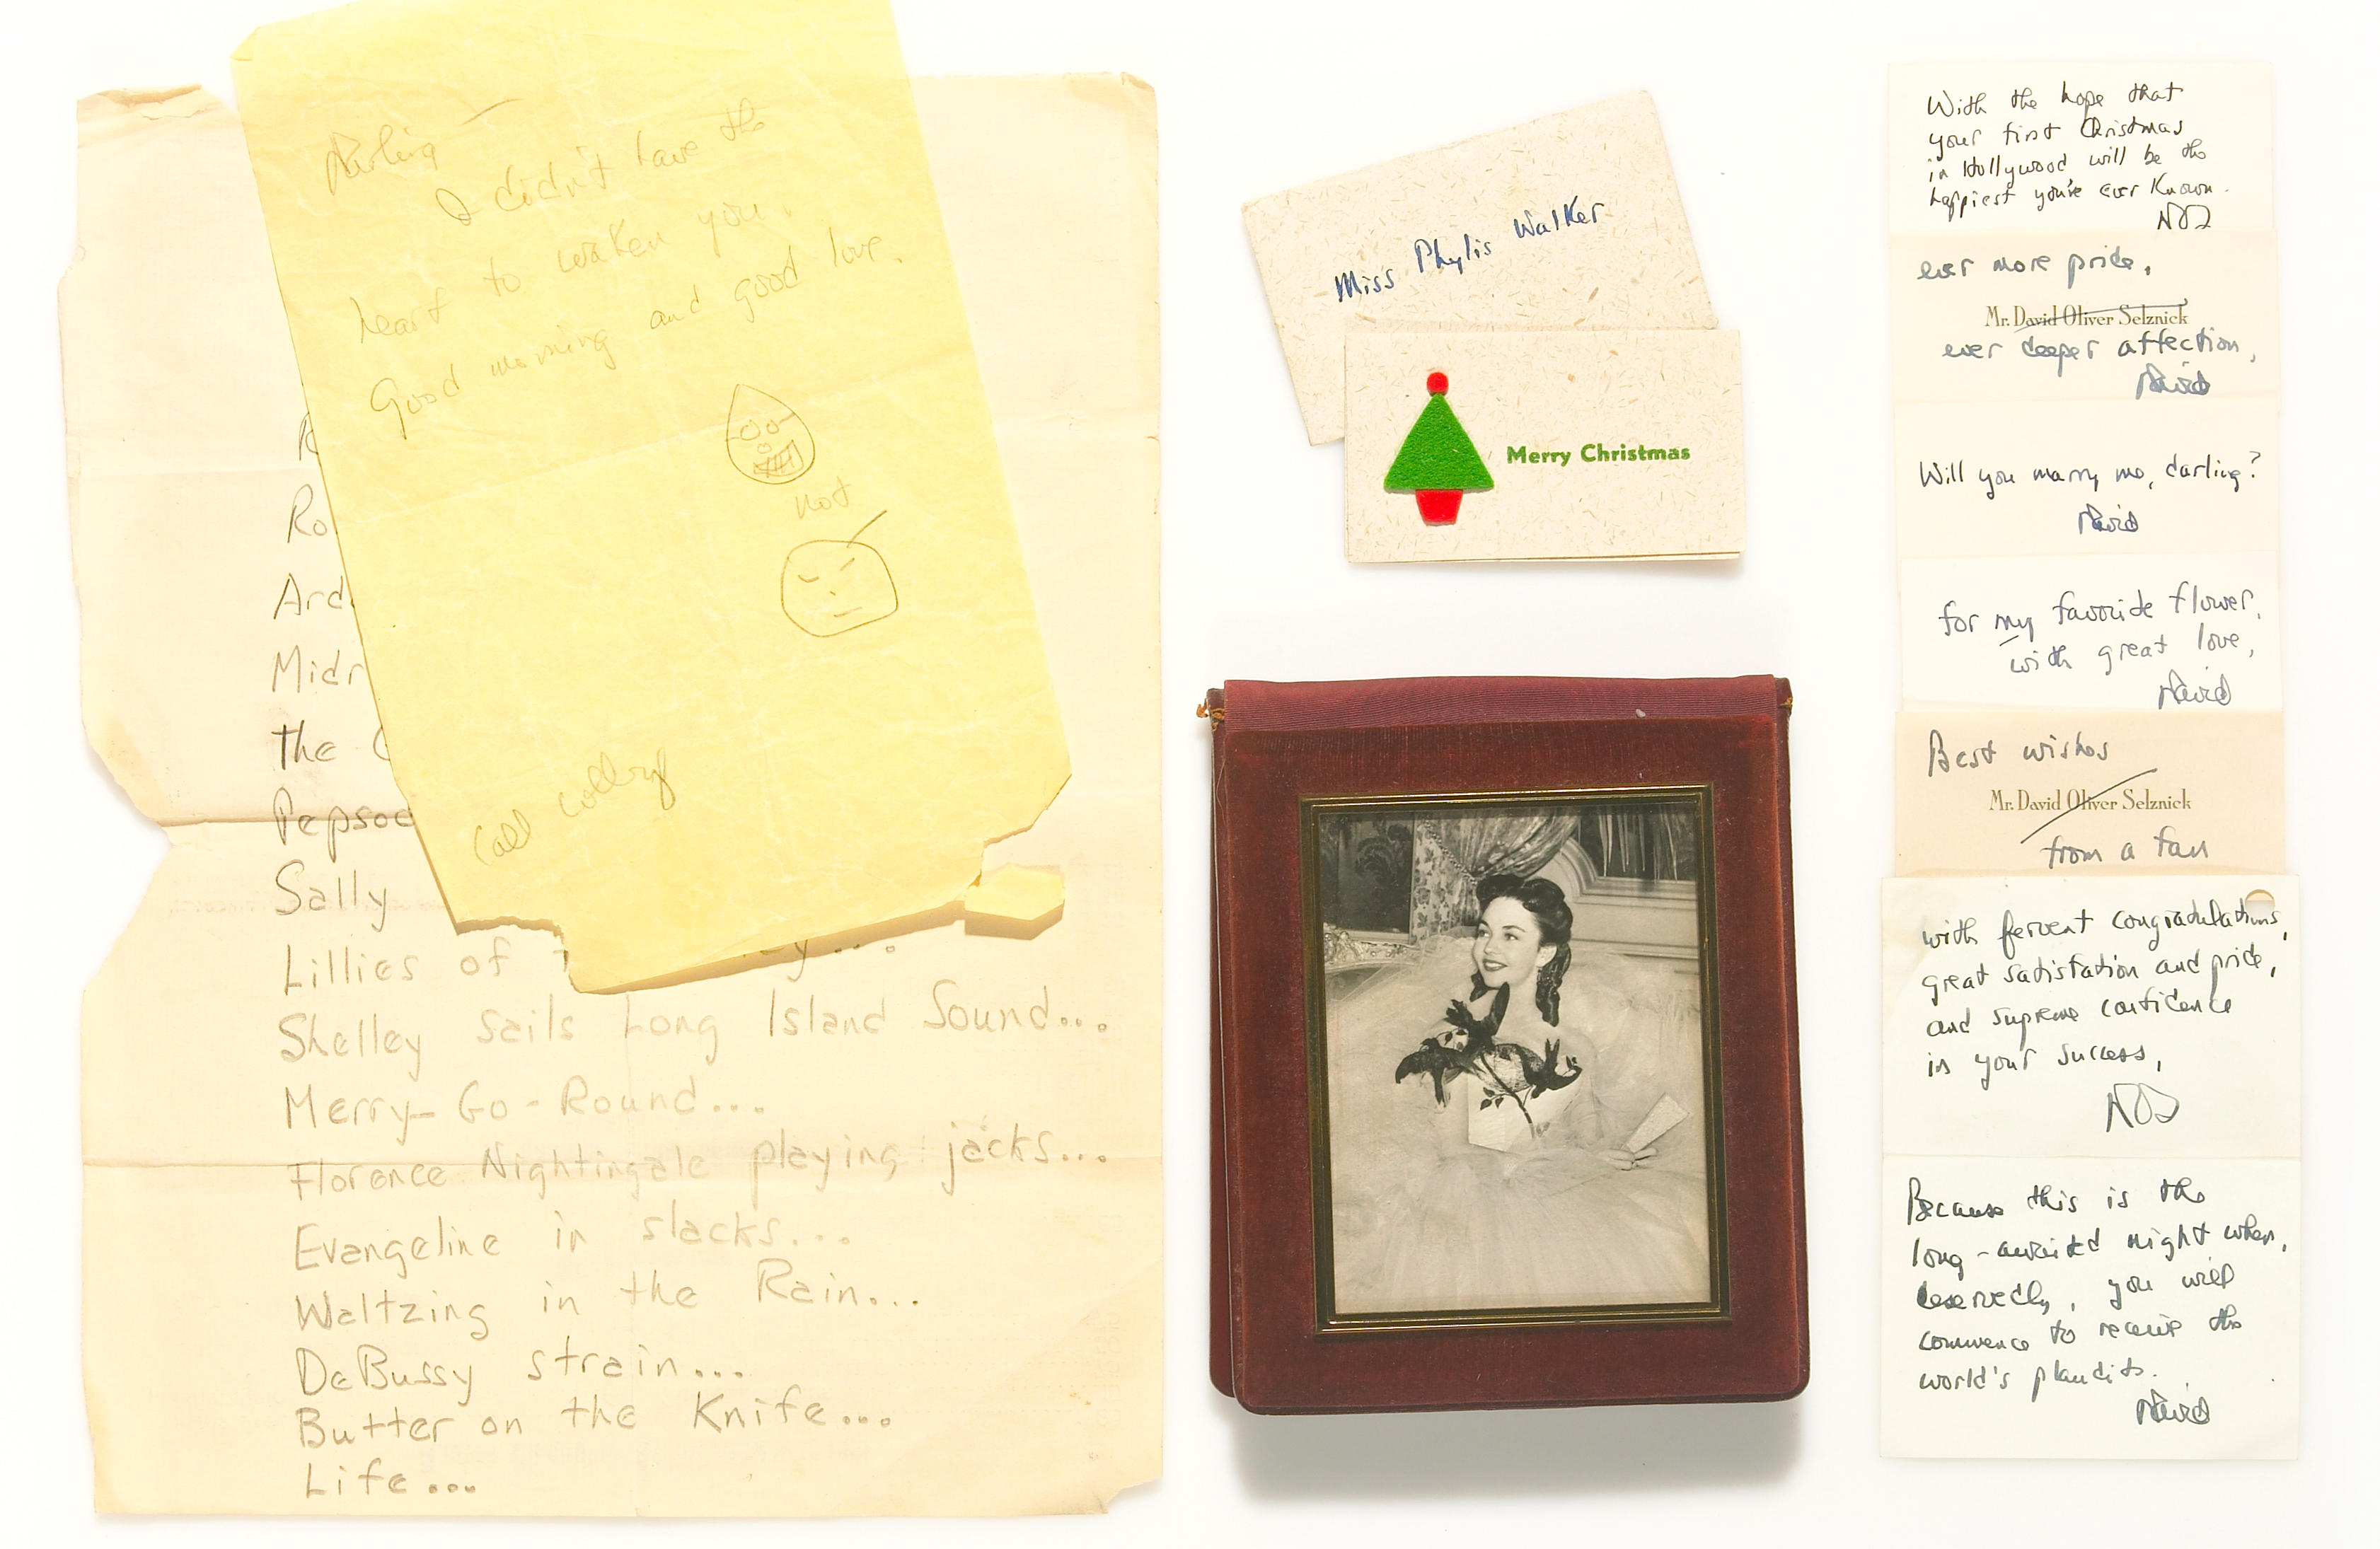 Darling —
I didn't have the
heart to waken you.
Good morning and good love.
not
Call
R
Ro
Ard
Midn
the
Pepsod
Sally
Lillies of
Shelley Sails Long Island Sound...
Merry-Go-Round...
Florence Nightingale playing jacks...
Evangeline in slacks...
Waltzing in the Rain...
DeBussy strain...
Butter on the Knife...
Life...
Miss Phylis Walker
Merry Christmas
With the hope that
your first Christmas
in Hollywood will be the
happiest you've ever known.
DOS
ever more pride,
Mr. David Oliver Selznick
ever deeper affection,
David
Will you marry me, darling?
David
for my favorite flower,
with great love,
David
Best wishes
Mr. David Oliver Selznick
from a fan
with fervent congradulations,
great satisfation and pride,
and supreme confidence
in your success,
DOS
Because this is the
long-awaited night when,
deservedly, you will
commence to receive the
world's plaudits.
David